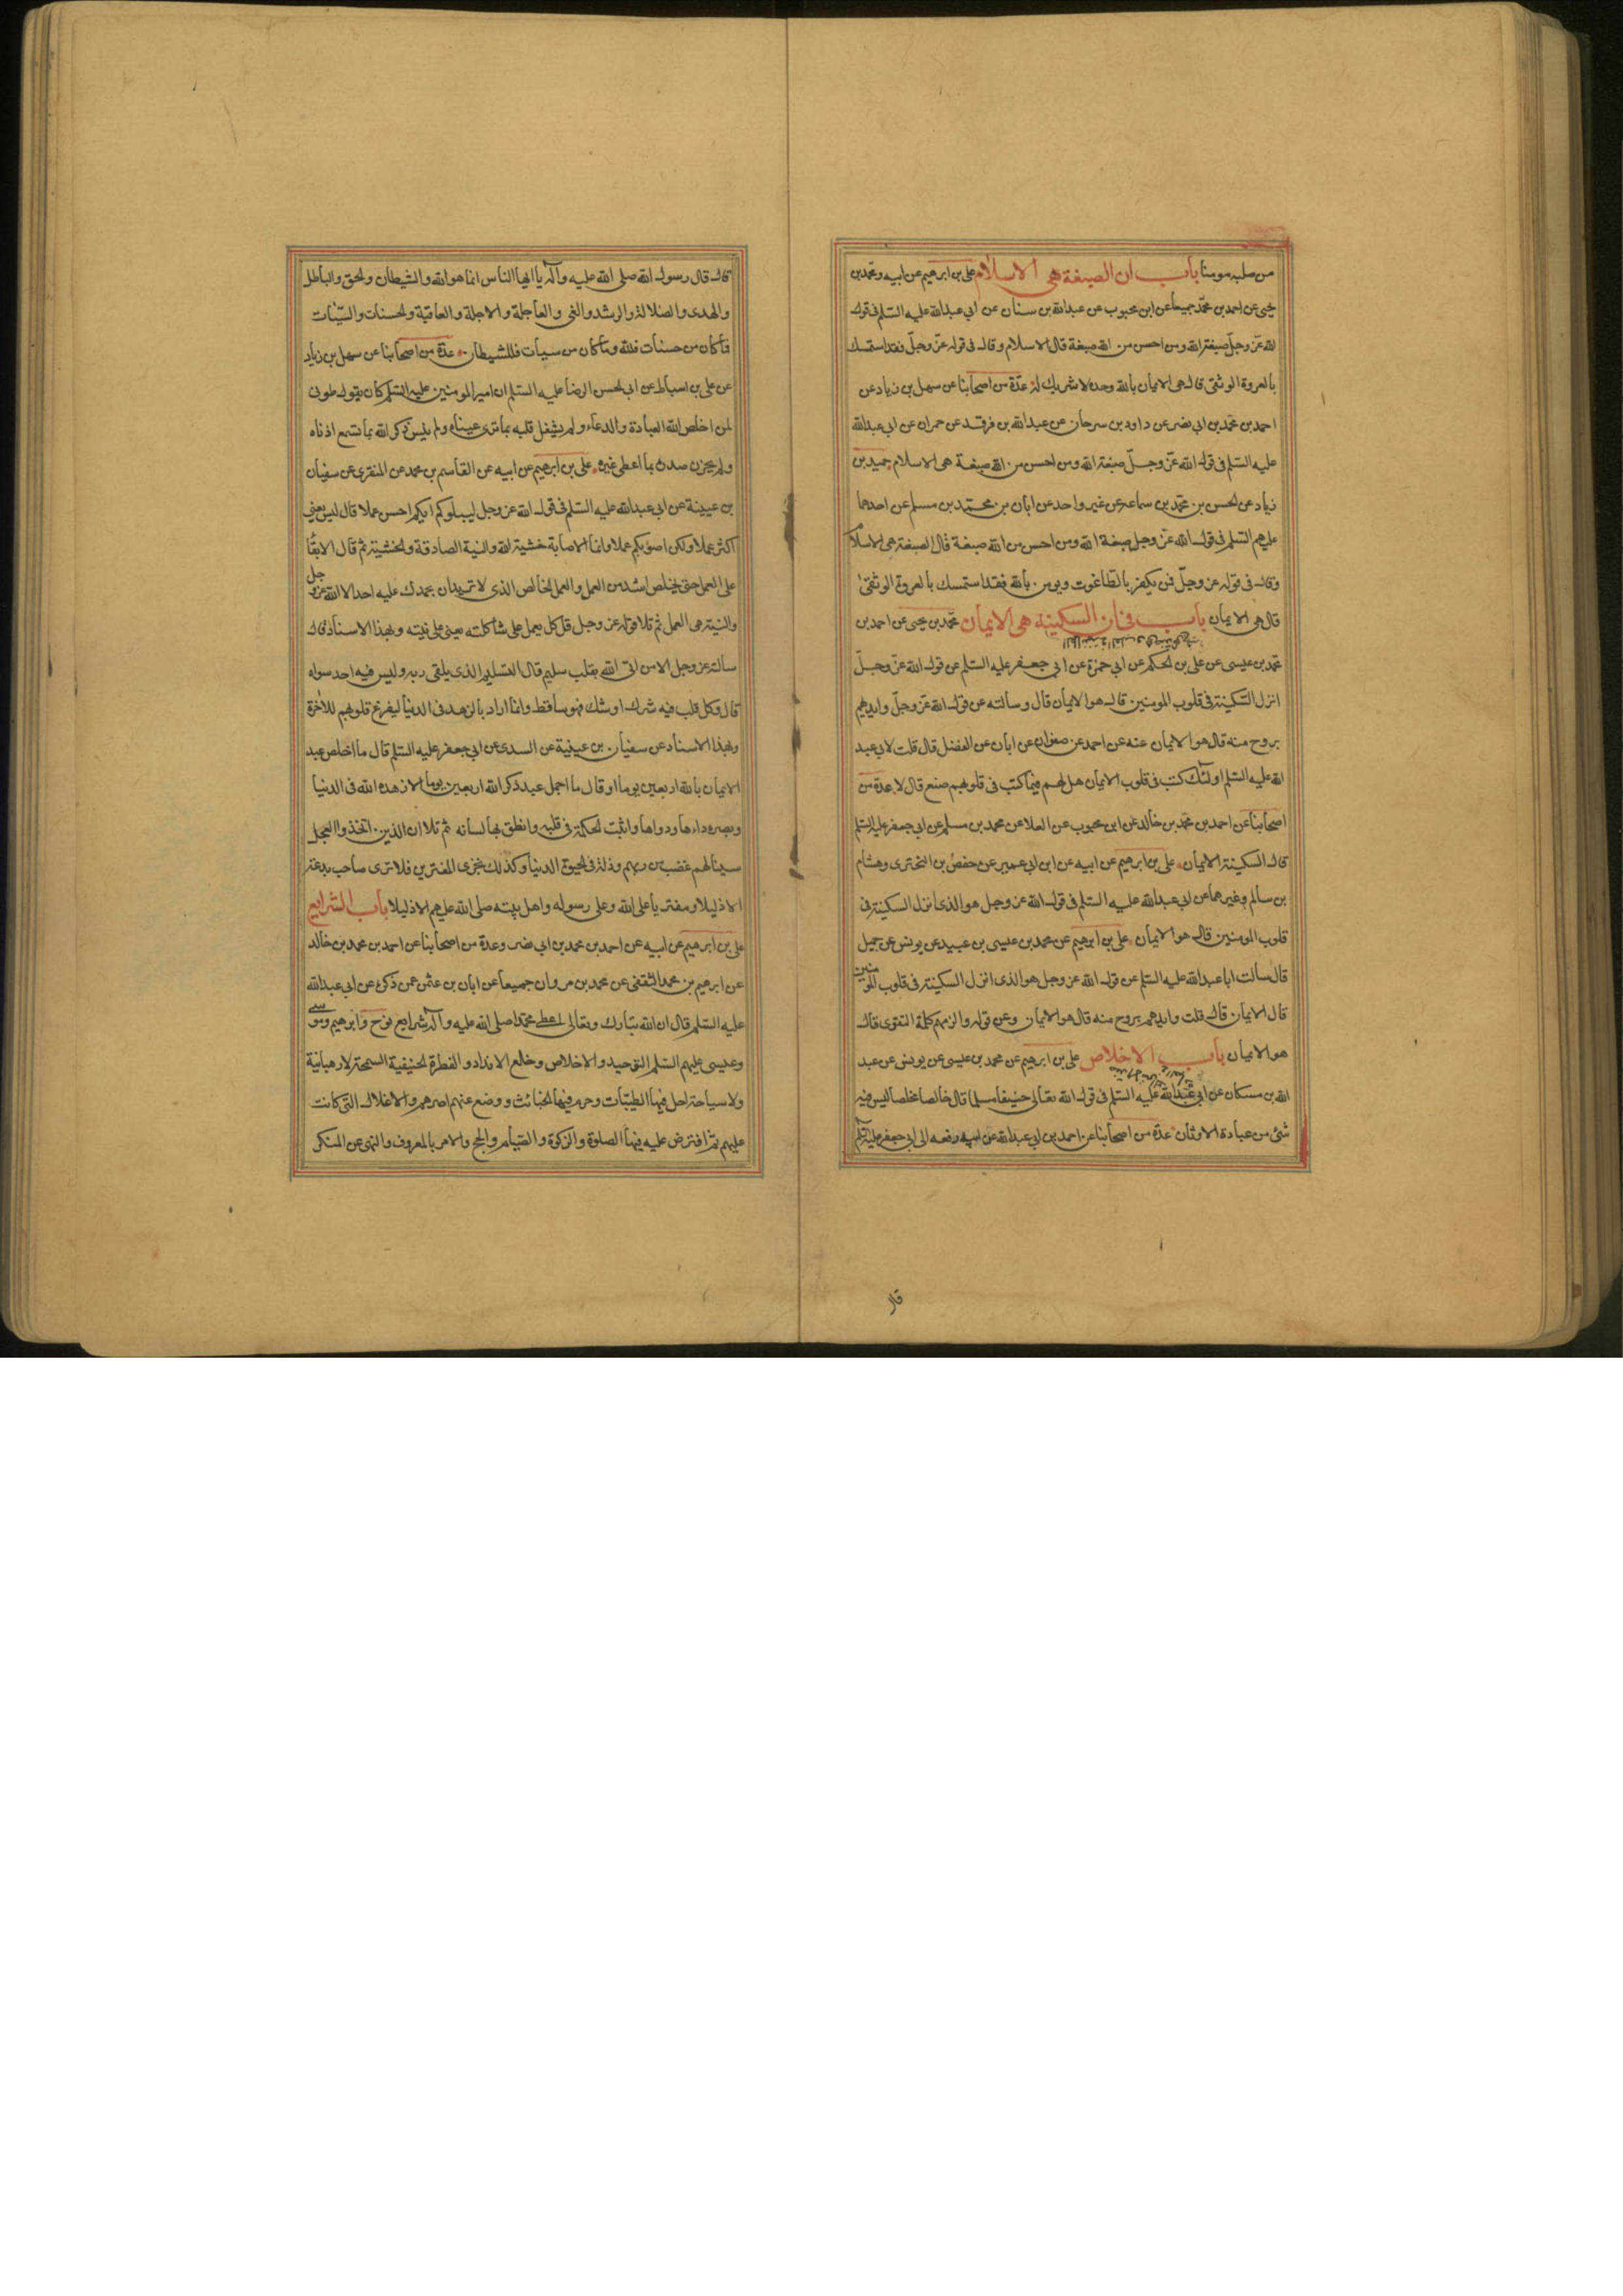 من صلبه مومنا باب ان الصبغة هى الاسلام على بن ابرهيم عن ابيه ومحمد بن
يحيى عن احمد بن محمد جميعا عن ابن محبوب عن عبدالله بن سنان عن ابي عبدالله عليه السلم فى قول
الله عز وجل صبغة الله ومن احسن من الله صبغة قال الاسلام وقال فى قوله عز وجل فقد استمسك
بالعروة الوثقى قال هى الايمان بالله وحده لا شريك له عدة من اصحابنا عن سهل بن زياد عن
احمد بن محمد بن ابى نصر عن داود بن سرحان عن عبدالله بن فرقد عن حمران عن ابى عبدالله
عليه السلم فى قول الله عز وجل صبغة الله ومن احسن من الله صبغة هى الاسلام حميد بن
زياد عن الحسن بن محمد بن سماعة عن غير واحد عن ابان بن محمد بن مسلم عن احدهما
عليهم السلم فى قول الله عز وجل صبغة الله ومن احسن من الله صبغة قال الصبغة هى الاسلام
وقال فى قوله عز وجل فمن يكفر بالطاغوت ويومن بالله فقد استمسك بالعروة الوثقى
قال هى الايمان باب فى ان السكينة هى الايمان محمد بن يحيى عن احمد بن
محمد بن عيسى عن على بن الحكم عن ابى حمزة عن ابى جعفر عليه السلم عن قول الله عز وجل
انزل السكينة فى قلوب المومنين قال هو الايمان قال وسالته عن قول الله عز وجل وايدهم
بروح منه قال هو الايمان عنه عن احمد عن صفوان عن ابان عن الفضل قال قلت لابى عبد
الله عليه السلم اولئك كتب فى قلوب الايمان هل لهم فيما كتب فى قلوبهم صنع قال لا عدة من
اصحابنا عن احمد بن محمد بن خالد عن ابن محبوب عن العلا عن محمد بن مسلم عن ابى جعفر عليه السلم
قال السكينة الايمان على بن ابرهيم عن ابيه عن ابن ابى عمير عن حفص بن البخترى وهشام
بن سالم وغيرهما عن ابى عبدالله عليه السلم فى قول الله عز وجل هو الذى انزل السكينة فى
قلوب المومنين قال هو الايمان على بن ابرهيم عن محمد بن عيسى بن عبيد عن يونس عن جميل
قال سالت ابا عبدالله عليه السلم عن قول الله عز وجل هو الذى انزل السكينة فى قلوب المومنين
قال الايمان قال قلت وايدهم بروح منه قال هو الايمان وعن قوله والزمهم كلمة التقوى قال
هو الايمان باب الاخلاص على بن ابرهيم عن محمد بن عيسى عن يونس عن عبد
الله بن مسكان عن ابى عبدالله عليه السلم فى قول الله تعالى حنيفا مسلما قال خالصا مخلصا ليس فيه
شئ من عبادة الاوثان عدة من اصحابنا عن احمد بن ابى عبدالله عن ابيه رفعه الى ابى جعفر عليه السلم
قال
قال قال رسول الله صلى الله عليه وآله يا ايها الناس انما هو الله والشيطان والحق والباطل
والهدى والضلالة والرشد والغى والعاجلة والاجلة والعاقبة والحسنات والسيئات
فما كان من حسنات فلله وما كان من سيات فللشيطان عدة من اصحابنا عن سهل بن زياد
عن على بن اسباط عن ابى الحسن الرضا عليه السلم ان امير المومنين عليه السلم كان يقول طوبى
لمن اخلص لله العبادة والدعاء ولم يشغل قلبه بما ترى عيناه ولم ينس ذكر الله بما تسمع اذناه
ولم يحزن صدره بما اعطى غيره على بن ابرهيم عن ابيه عن القاسم بن محمد عن المنقرى عن سفيان
بن عيينة عن ابى عبدالله عليه السلم فى قول الله عز وجل ليبلوكم ايكم احسن عملا قال ليس يعنى
اكثر عملا ولكن اصوبكم عملا وانما الاصابة خشية الله والنية الصادقة والخشية ثم قال الابقا
على العمل حتى يخلص اشد من العمل والعمل الخالص الذى لا تريد ان يحمدك عليه احد الا الله عز وجل
والنية هى العمل ثم تلا قوله عز وجل قل كل يعمل على شاكلته يعنى على نيته وبهذا الاسناد قال
سالته عز وجل الا من اتى الله بقلب سليم قال السليم الذى يلقى ربه وليس فيه احد سواه
قال وكل قلب فيه شرك او شك فهو ساقط وانما اراد بالزهد فى الدنيا ليفرغ قلوبهم للآخرة
وبهذا الاسناد عن سفيان بن عيينة عن السدى عن ابى جعفر عليه السلم قال ما اخلص عبد
الايمان بالله اربعين يوما او قال ما اجمل عبد ذكر الله اربعين يوما الا زهده الله فى الدنيا
وبصره داءها ودواها واثبت الحكمة فى قلبه وانطق بها لسانه ثم تلا ان الذين اتخذوا العجل
سينالهم غضب من ربهم وذلة فى الحيوة الدنيا وكذلك نجزى المفترين فلا ترى صاحب بدعة
الا ذليلا ومفتريا على الله وعلى رسوله واهل بيته صلى الله عليهم الا ذليلا باب الشرايع
على بن ابرهيم عن ابيه عن احمد بن محمد بن ابى نصر وعدة من اصحابنا عن احمد بن محمد بن خالد
عن ابرهيم بن محمد الثقفى عن محمد بن مروان جميعا عن ابان بن عثمن عن ذكره عن ابى عبدالله
عليه السلم قال ان الله تبارك وتعالى اعطى محمدا صلى الله عليه وآله شرايع نوح وابرهيم وموسى
وعيسى عليهم السلم التوحيد والاخلاص وخلع الانداد والفطرة الحنيفية السمحة لا رهبانية
ولا سياحة احل فيها الطيبات وحرم فيها الخبائث ووضع عنهم اصرهم والاغلال التى كانت
عليهم ثم افترض عليه فيها الصلوة والزكوة والصيام والحج والامر بالمعروف والنهى عن المنكر